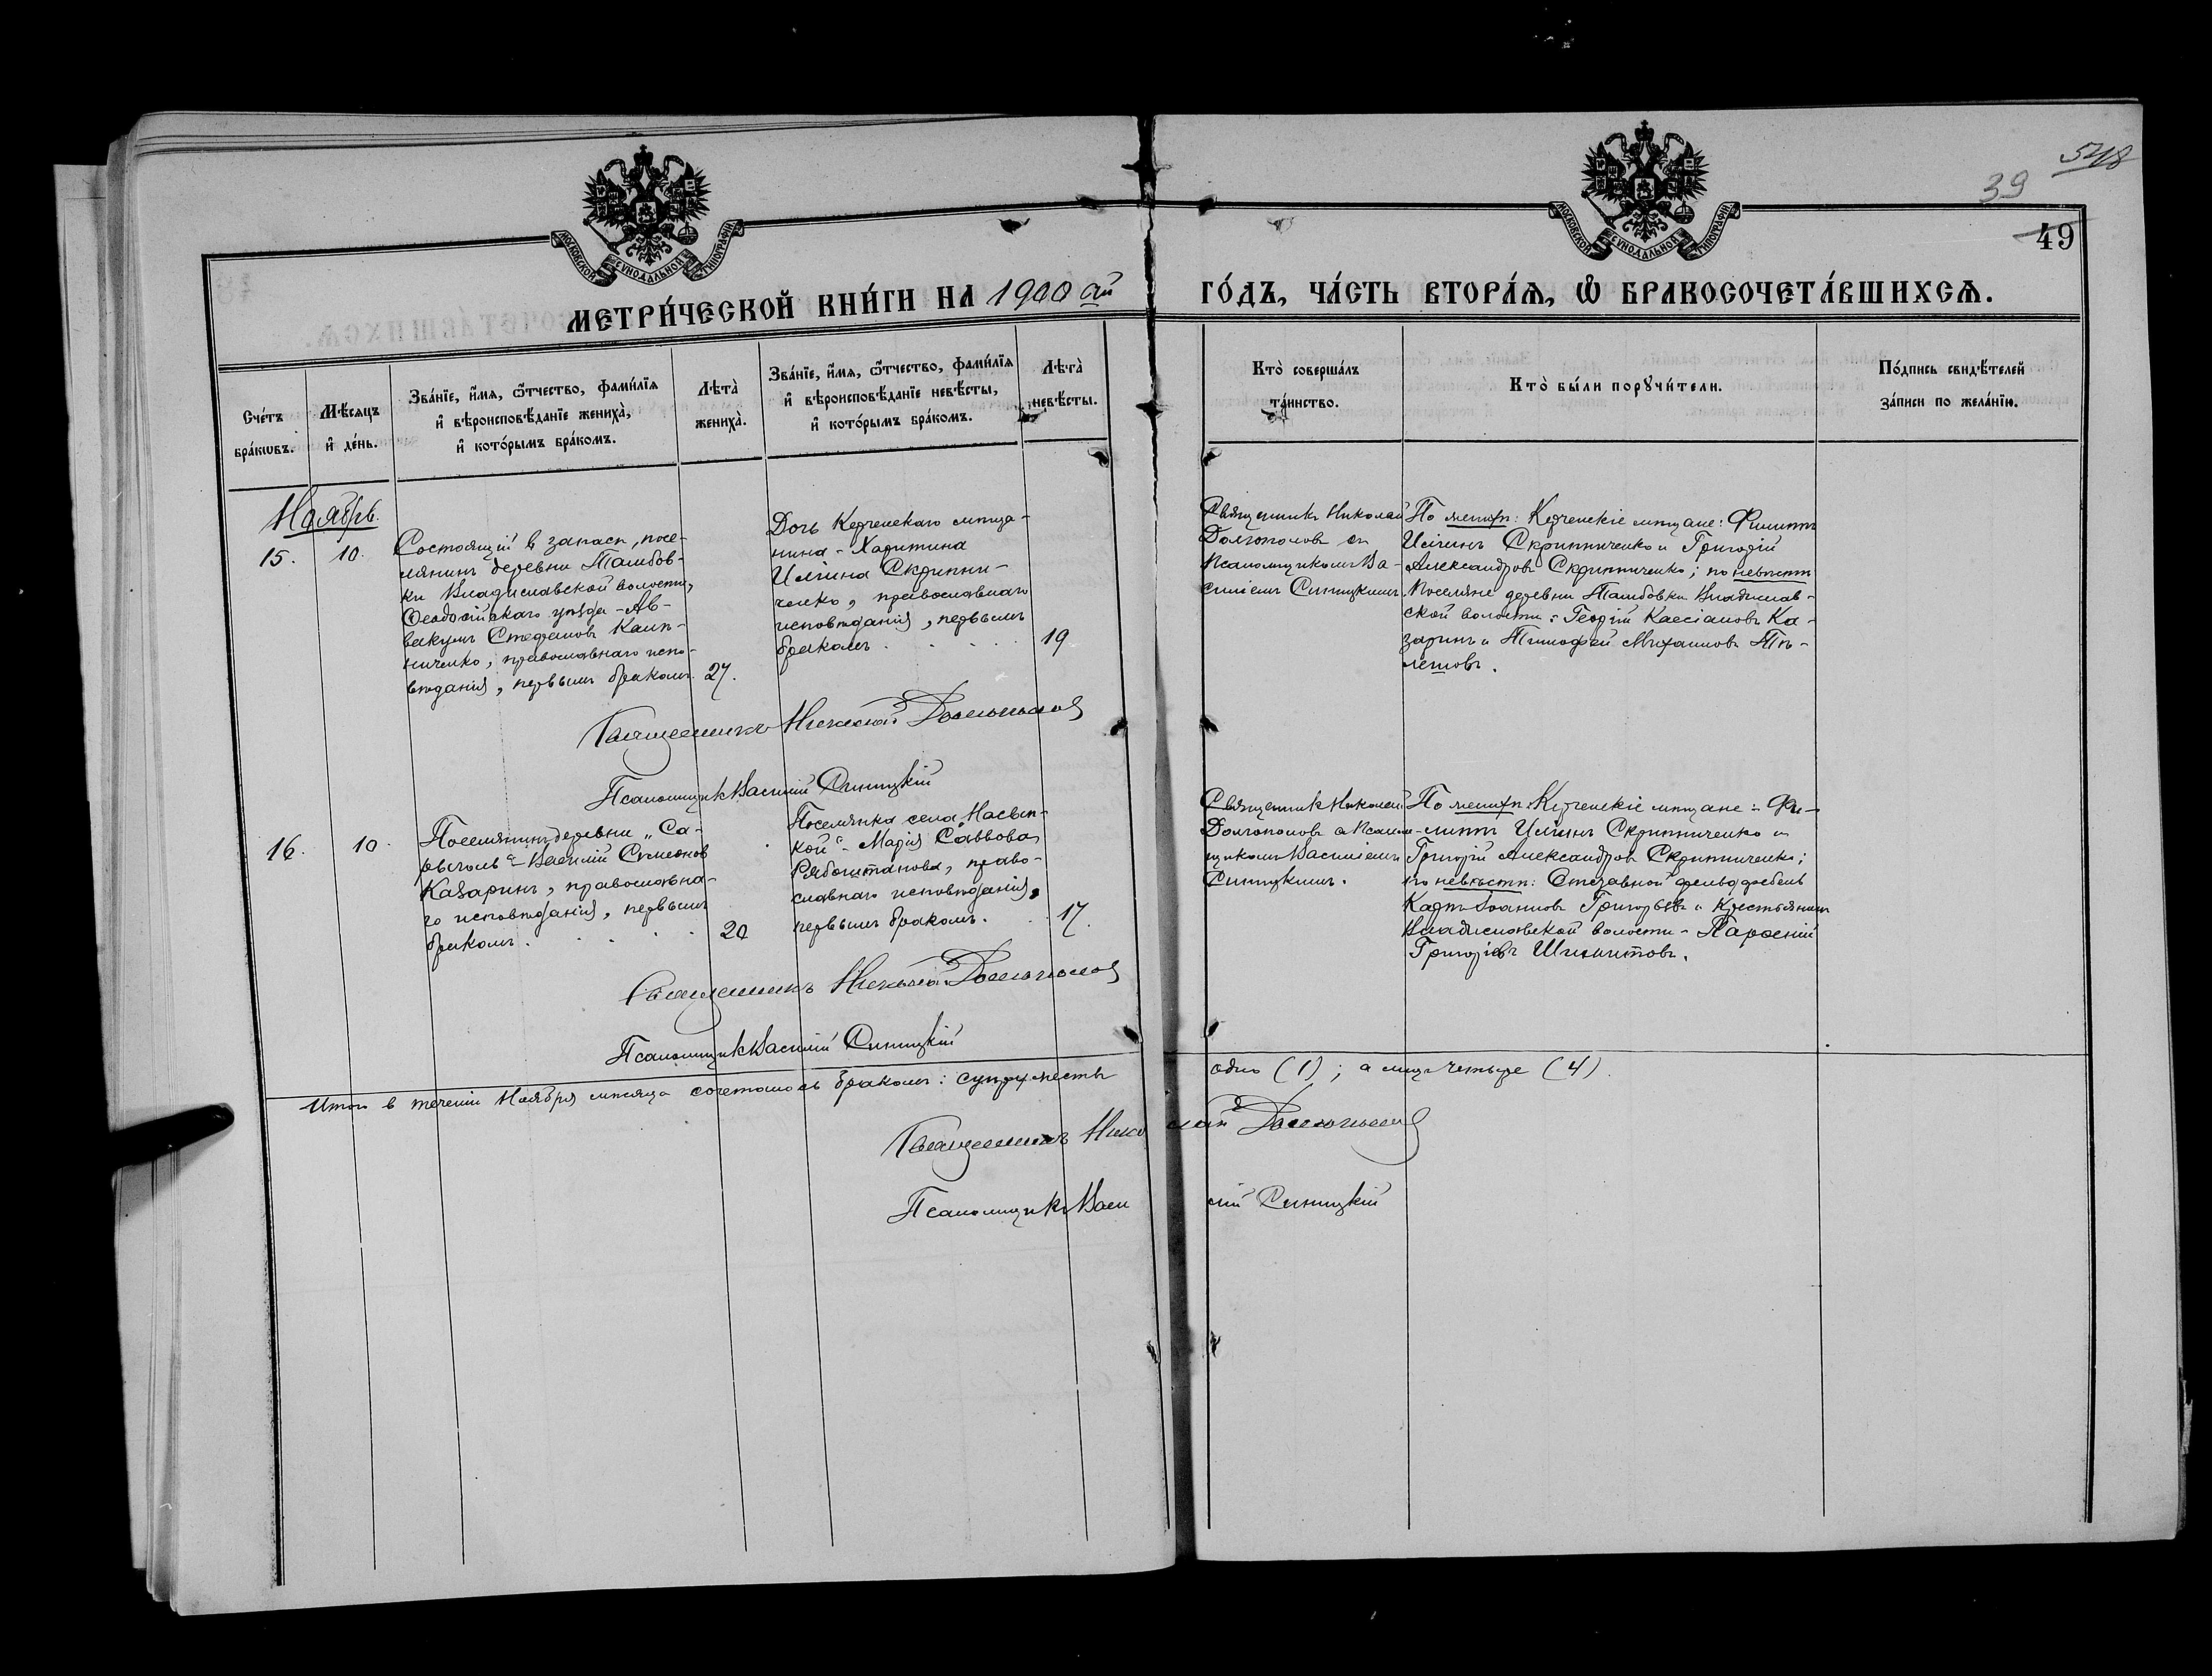 548
39
49
МОСКОВСКОЙ СѴНОДАЛЬНОЙ ТИПОГРАФІИ
МОСКОВСКОЙ СѴНОДАЛЬНОЙ ТИПОГРАФІИ
МЕТРИ́ЧЕСКОЙ КНИ́ГИ НА 1900 ый ГО́ДЪ, ЧА́СТЬ ВТОРА́Ѧ, Ѡ҆ БРАКОСОЧЕТА́ВШИХСѦ.
Сче́тъ
бра́кѡвъ.
Мѣ́сѧцъ
и҆ де́нь.
Зва́нїе, и҆́мѧ, ѻ҆́тчество, фами́лїѧ
и҆ вѣроисповѣ́данїе жениха̀,
и҆ кото́рымъ бра́комъ.
Лѣта̀
жениха̀.
Зва́нїе, и҆́мѧ, ѻ҆́тчество, фами́лїѧ
и҆ вѣроисповѣ́данїе невѣ́сты,
и҆ кото́рымъ бра́комъ.
Лѣта̀
невѣ́сты.
Кто̀ соверша́лъ
та́инство.
Кто̀ бы́ли порꙋчи́тели.
По́дпись свидѣ́телей
за́писи по жела́нїю.
Ноябрь.
15.
10.
Состоящій в запасѣ, посе-
лянинъ деревни Тамбов-
ки Владиславской волости,
Ѳеодосійскаго уѣзда - Ав-
вакумъ Стефановъ Калп-
ниченко, православнаго испо-
вѣданія, первымъ бракомъ.
27.
Дочь Керченскаго мѣща-
нина - Харитина
Иліина Скрипни-
ченко, православнаго
исповѣданія, первымъ
бракомъ.
19
Священникъ Николай
Долгополовъ съ
Псаломщикомъ Ва-
силіемъ Синицкимъ.
По женихѣ: Керченскіе мѣщане: Филиппъ
Иліинъ Скрипниченко и Григорій
Александровъ Скрипниченко; по невѣстѣ
Поселяне деревни Тамбовки Владислав-
ской волости: Георгій Кассіановъ Ка-
заринъ и Тимофей Михаиловъ Тѣ-
лешовъ.
Священникъ Николай Долгополовъ
Псаломщикъ Василій Синицкій
16.
10.
Поселянинъ деревни „Са-
рыголь“ - Василій Симеонов
Казаринъ, православна-
го исповѣданія, первымъ
бракомъ.
20
Поселянка села „Насып-
кой“ - Марія Саввова
Рябоштанова, право-
славнаго исповѣданія,
первымъ бракомъ.
17.
Священникъ Николай
Долгополовъ с Псалом-
щикомъ Василіемъ
Синицкимъ.
По женихѣ: Керченскіе мѣщане: Фи-
липпъ Иліинъ Скрипниченко и
Григорій Александровъ Скрипниченко;
по невѣстѣ: Отставной фельдфебель
Карпъ Іоанновъ Григорьевъ и Крестьянинъ
Владиславской волости - Парѳеній
Григорьевъ
Священникъ Николай Долгополовъ
Псаломщикъ Василій Синицкій
Итого в теченіи Ноября мѣсяца сочеталось бракомъ: супружествъ одно (1); а лицъ четыре (4).
Священникъ Николай Долгополовъ
Псаломщикъ Василій Синицкій